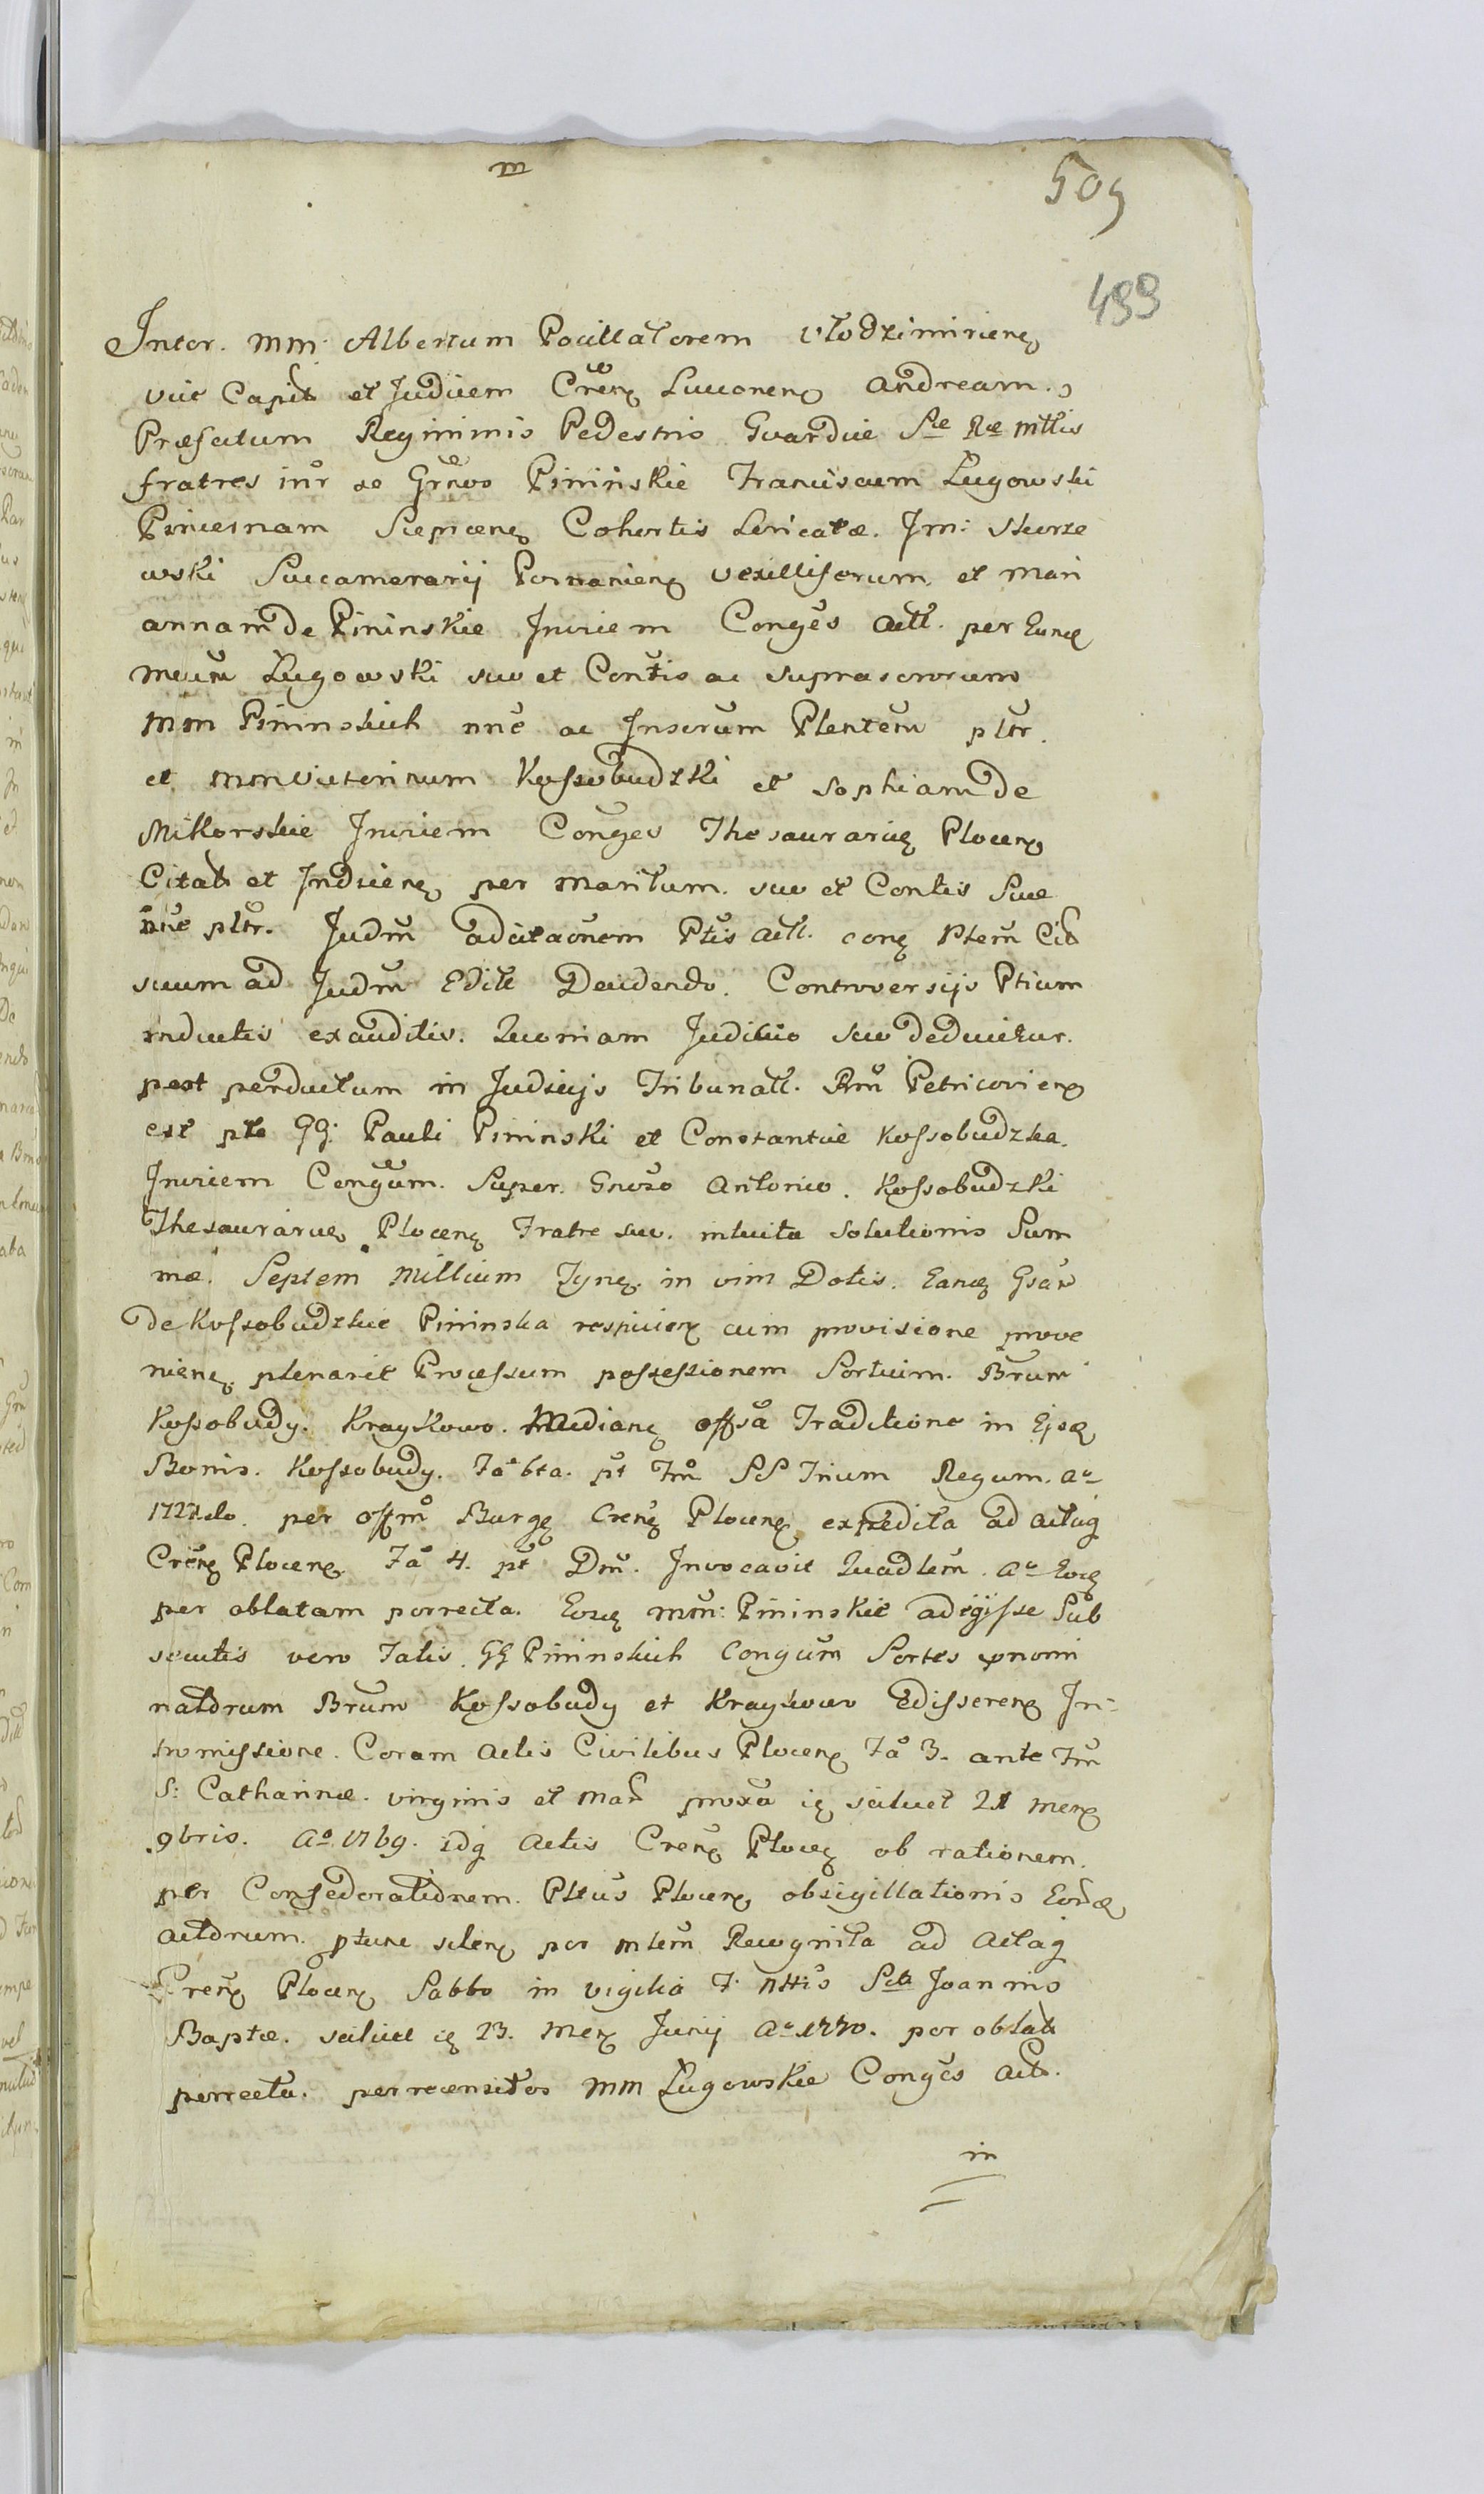 m
509
499
Inter. MM. Albertum Pocillatorem Włodzimirienę
vice Capit et Judicem Crenę Luceorienę Andream.
Præfectum Regiminis Pedestris Gvardiæ Sae Rae Mttis
fratres inr se Grnos Pininskie Franciscum Lugowski
Pincernam Cohortis Loricatæ. Jm: Skorze
wski Succamerarij Posnanienę vexilliferum. et Mari
annam de Pininskie Invicem Conges Actt. per Eunę
meum Lugowski suo et Contis ac suprascrorum
Mm Pininskich nne ac Inserum Plentem pltr.
et Kossobudzki et Sophiam de
Mikorskie Invicem Conges Thesaurarię Plocenę
Citat et Inducenę per maritum. suo et Contis Suæ
nne pltr. Judm adcitaonem Ptis Actt. conę Ptem Cit
suum ad Judm Editt Decidendo. Controversijs Ptium
inductis exauditis. Quoniam Judicio suo deducitur.
post perductum in Judicijs Tribunall. Rni Petricovienę
est pte GG. Pauli Pininski et Constantiæ Kossobudzka.
Invicem Congum. Super. Gnoso Antonio. Kossobudzki
Thesaurario Plocenę Fratre suo. intuitu solutionis Sum
mæ. Septem Millium Tynf. in vim Dotis. Eanę Gsam
de Kossobudzkie Pininska respicienę cum provisione prove
nienę plenarie Processum possessionem Sortium. Brum
Kossobudy. Kraykowo. Medianę offsa Traditione in Ejsdę
Bonis. Kossobudy. Fa 6ta. pt Fm SS Trium Regum. Ao
1727do. per Offm Burgę Crenę Plocenę expedita ad Actaę
Crenę Plocenę Fa 4. pt Dm. Invocavit Quadlem. Ao Eoę
per oblatam porrecta. Eosę MM: Pininskie adegisse Sub
secutis vero Fatis. GG Pininskich Congum Sortes prnomi
natorum Brum Kossobudy et Kraykowo Edisserenę In-
tromissione. Coram Actis Civilibus Plocenę Fa 3. ante Fm
S: Catharinæ. virginis et Mar proxa ię scilicet 21 Menę
9bris. Ao 1769. idę Actis Crenę Plocę ob rationem.
per Confederationem. Pltus Plocenę obsigillationis Eordę
Actorum. ptunc per Mlem Recognita ad Actaę
Crenę Plocenę Sabbo in vigilia F. Nttis Scti Joannis
Baptæ. scilicet ię 23. Menę Junij Ao 1770. per oblat
porrecta. per recensitos MM Lugowskie Conges Act.
in